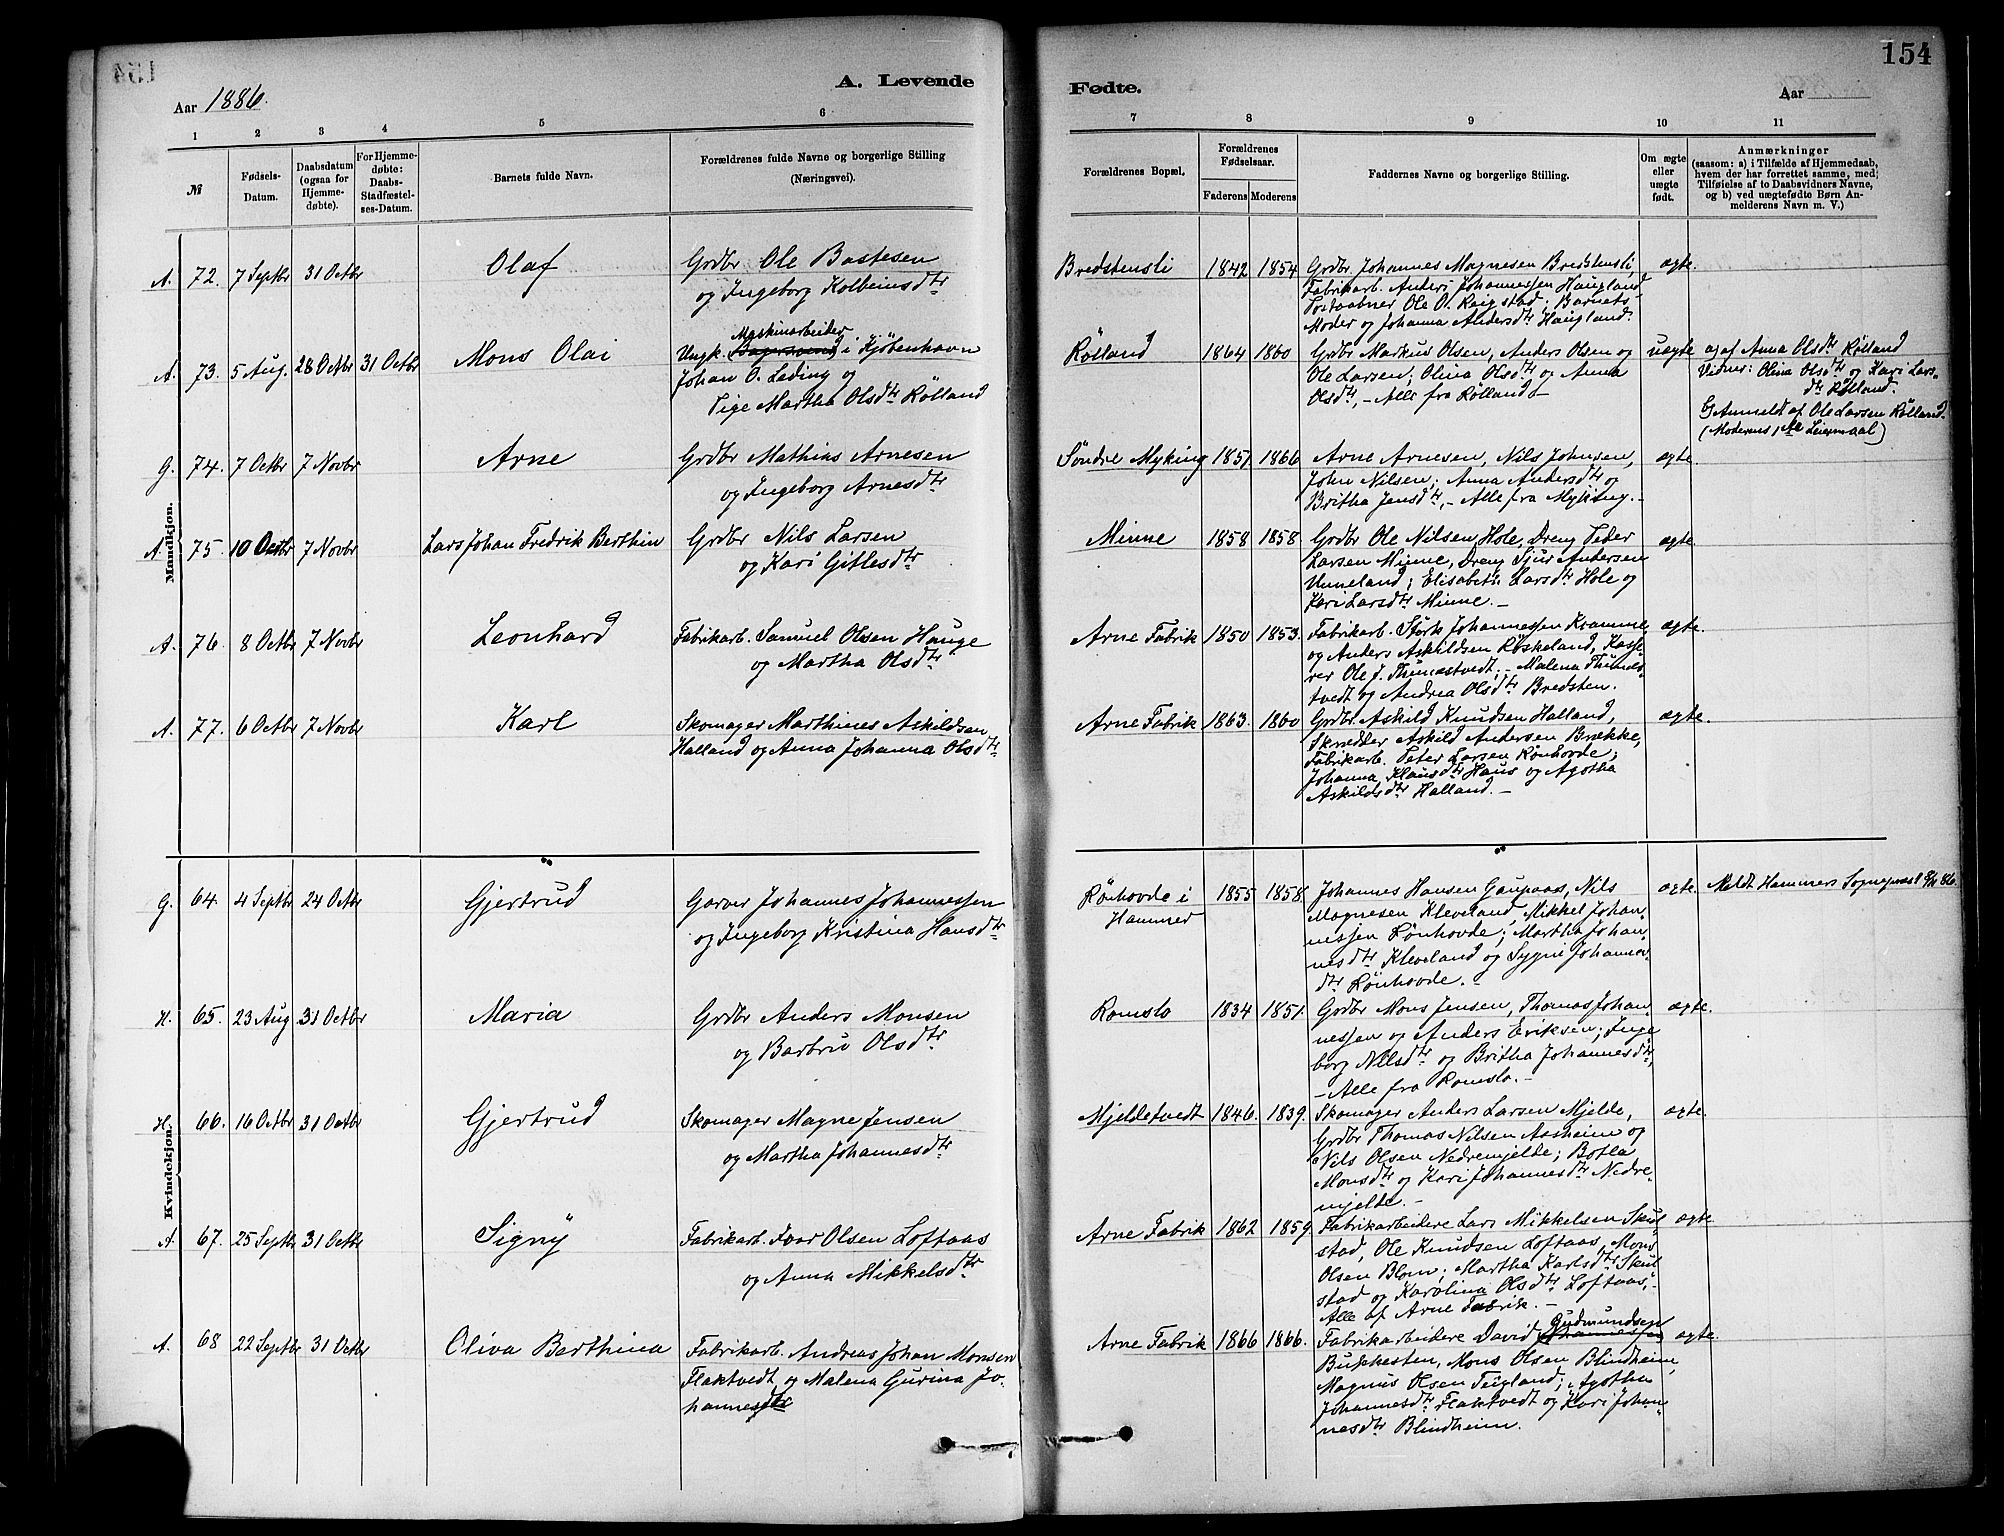 154
Aar 1886.
A. Levende
Fødte.
Aar
1 2 3 4 5 6 7 8 9 10 11
№
Fødsels-
Datum.
Daabsdatum
(ogsaa for
Hjemme-
døbte).
For Hjemme-
døbte:
Daabs-
Stadfæstel-
ses-Datum.
Barnets fulde Navn.
Forældrenes fulde Navne og borgerlige Stilling
(Næringsvei).
Forældrenes Bopæl.
Forældrenes
Fødselsaar.
Faderens Moderens
Faddernes Navne og borgerlige Stilling.
Om ægte
eller
uægte
født.
Anmærkninger
(saasom: a) i Tilfælde af Hjemmedaab,
hvem der har forrettet samme, med
Tilføielse af to Daabsvidners Navne,
og b) ved uægtefødte Børn An-
melderens Navn m. V.)
Mandkjøn.
A. 72. 7 Septbr 31 Octbr
Olaf
Grdbr Ole Bastesen
og Ingeborg Kolbeinsdtr
Bredstensli
1842 1854
Grdbr. Johannes Magnesen Bredstensli,
Fabrikarb. Anders Johannessen Haugland
Postaabner Ole O. Reigstad; Barnets
Moder og Johanna Andersdtr Haugland.
ægte.
A. 73. 5 Aug. 28 Octbr 31 Octbr
Mons Olai
Maskinarbeider
Ungk. i Kjøbenhavn
Johan O. Lading og
Pige Martha Olsdtr Rølland
Rølland
1864 1860
Grdbr Markus Olsen, Anders Olsen og
Ole Larsen; Olina Olsdtr og Anna
Olsdtr, - Alle fra Rølland -
uægte
a) af Anna Olsdtr Rølland
Vidner: Olina Olsdtr og Kari Lars-
dtr Rølland.
b) Anmeldt af Ole Larsen Rølland.
(Moderens 1ste Leiermaal)
G. 74. 7 Octbr 7 Novbr
Arne
Grdbr Mathias Arnesen
og Ingeborg Arnesdtr
Søndre Myking
1851 1866
Arne Arnesen, Nils Johnsen,
John Nilsen; Anna Andersdtr og
Britha Jensdtr, - Alle fra Myking. -
ægte.
A. 75. 10 Octbr 7 Novbr
Lars Johan Fredrik Berthin
Grdbr Nils Larsen
og Kari Gitlesdtr
Minne
1858 1858
Grdbr Ole Nilsen Hole, Dreng Peder
Larsen Minne, Dreng Sjur Andersen
Unneland; Elisabeth Larsdtr Hole og
Kari Larsdtr Minne. -
ægte.
A. 76. 8 Octbr 7 Novbr
Leonhard
Fabrikarb. Samuel Olsen Hauge
og Martha Olsdtr
Arne Fabrik
1850 1853.
Fabrikarb. Størk Johannessen Kramme,
og Anders Askildsen Røskeland, Kasse-
rer Ole J. Thunestvedt; - Malena Thunes-
tvedt og Andrea Olsdtr Bredsten.
ægte.
A. 77. 6 Octbr 7 Novbr
Karl
Skomager Marthines Askildsen
Halland og Anna Johanna Olsdtr
Arne Fabrik
1863. 1860
Grdbr. Askild Knudsen Halland,
Skrædder Askild Andersen Brække,
Fabrikarb. Peter Larsen Rønhovde;
Johanna Klausdtr Haus og Agotha
Askildsdtr Halland. -
ægte.
Kvindekjøn.
G. 64. 4 Septbr 24 Octbr
Gjertrud
Garver Johannes Johannessen
og Ingeborg Kristina Hansdtr
Rønhovde i
Hammer
1855 1858.
Johannes Hansen Gaupaas, Nils
Magnesen Kleveland, Mikkel Johan-
nessen Rønhovde; Martha Johan-
nesdtr Kleveland og Sygni Johannes-
dtr Rønhovde. -
ægte.
Meldt Hammers Sogneprest
H. 65. 23 Aug. 31 Octbr
Maria
Grdbr Anders Monsen
og Barbru Olsdtr
Romslo
1834 1851.
Grdbr Mons Jensen, Thomas Johan-
nessen og Anders Eriksen; Inge-
borg Nilsdtr og Britha Johannesdtr,
- Alle fra Romslo. -
ægte.
H. 66. 16 Octbr 31 Octbr
Gjertrud
Skomager Magne Jensen
og Martha Johannesdtr
Mjeldetvedt
1846. 1839.
Skomager Anders Larsen Mjelde,
Grdbr Thomas Nilsen Aasheim og
Nils Olsen Nedremjelde; Botla
Monsdtr og Kari Johannesdtr Nedre-
mjelde. -
ægte.
A. 67. 25 Septbr 31 Octbr
Signy
Fabrikarb. Ivar Olsen Loftaas
og Anna Mikkelsdtr
Arne Fabrik
1862 1859.
Fabrikarbeidere Lars Mikkelsen Skul-
stad, Ole Knudsen Loftaas, Mons
Olsen Blom; Martha Karlsdtr Skul-
stad og Karolina Olsdtr Loftaas, -
Alle af Arne Fabrik. -
ægte.
A. 68 22 Septbr 31 Octbr
Oliva Berthina
Fabrikarb. Andreas Johan Monsen
Flaktvedt og Malena Gurina Jo-
hannesdtr
Arne Fabrik
1866 1866.
Gudmundsen
Fabrikarbeidere David
Bukkesten, Mons Olsen Blindheim,
Magnus Olsen Teigland; Agotha
Johannesdtr Flaktvedt og Kari Johan-
nesdtr Blindheim.
ægte.